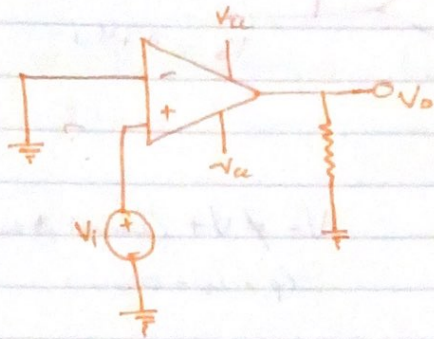 Vcc
-
+
-Vcc
Vo
Vi
+
-